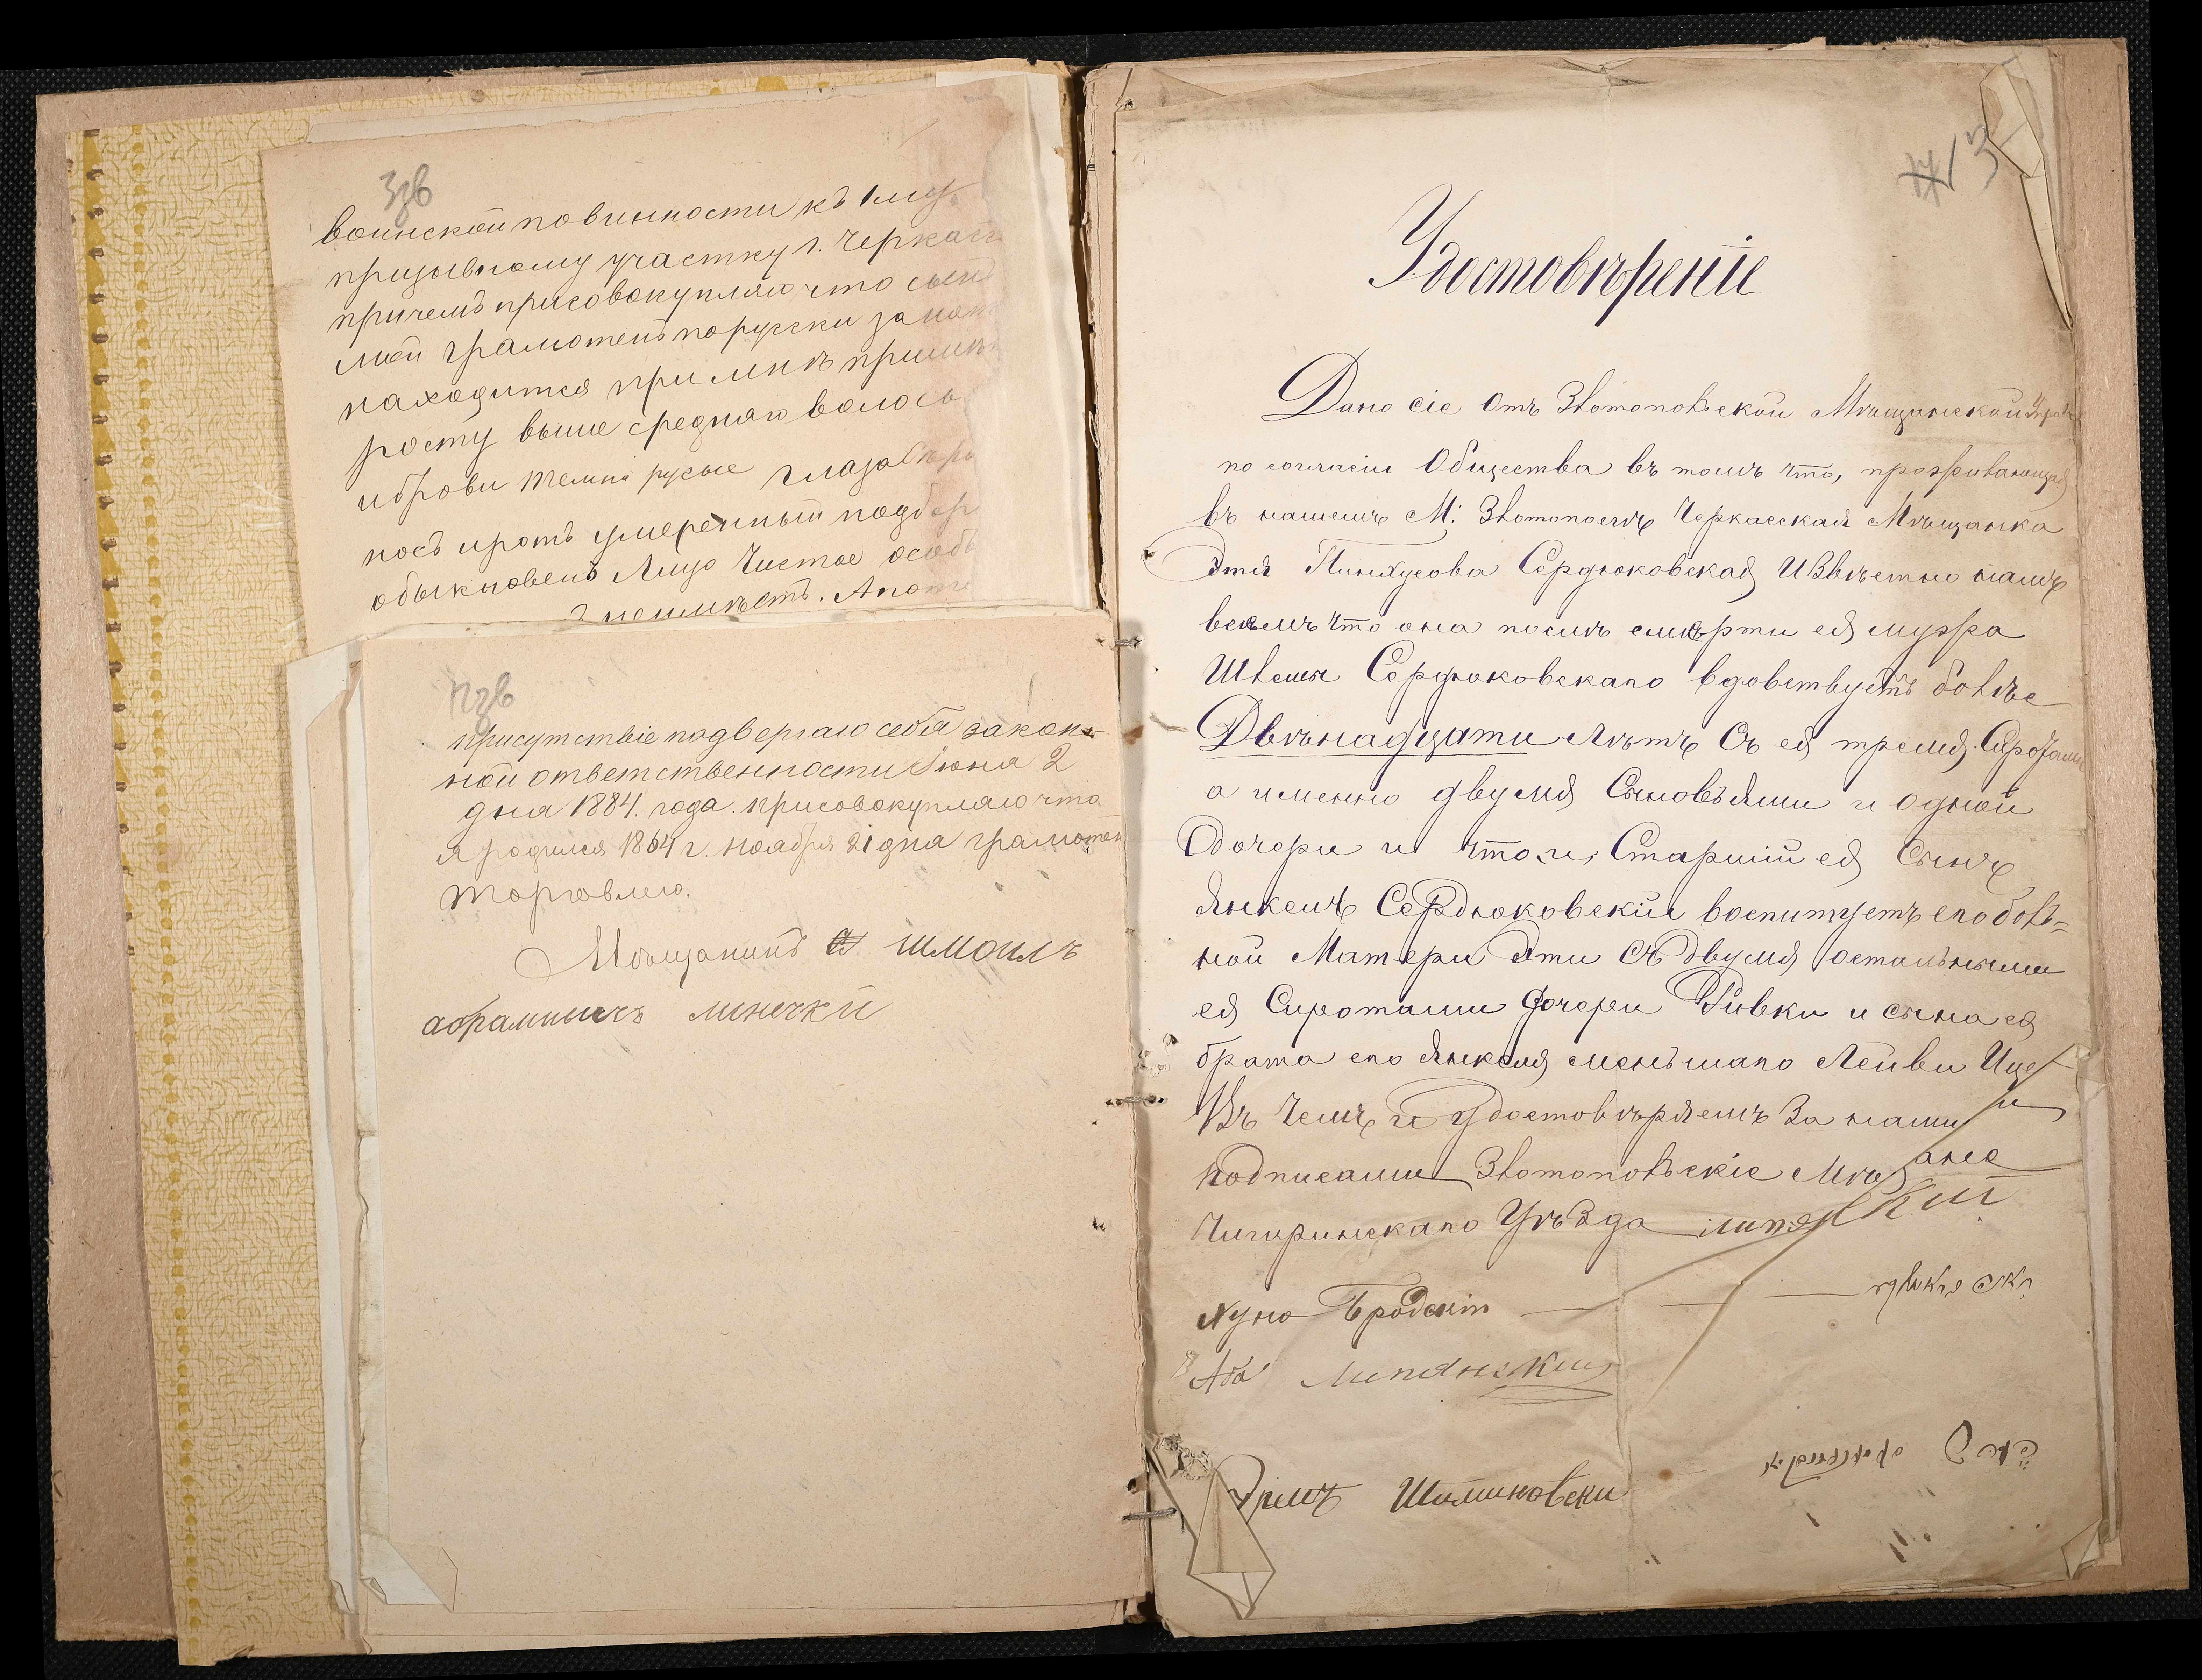 3зв
воинской повинности къ 1му
призывному участку г. Черкасъ
причемъ присовокупляю что сынъ
мой грамотенъ порусски
находится при мнѣ
росту выше средняго волосы
иброви темно русые глаза
носъ иротъ умеренный подбор
обыкновенъ Лицо Чистое особ
неимѣетъ. Апоте
присутствіе подвергаю себя закон-
ной ответственности Іюня 2
дня 1884. года. присовокупляю что
я родился 1864 г. ноября 21 дня грамотен
торговлею.
Мѣщанинъ шмоилъ
абрамовичъ линецкй
13
Удостовѣреніе
Дано сіе Отъ Златопольской Мѣщанской Управы
по согласію Общества въ томъ что, проживающая
въ нашемъ М: Златополѣ Черкасская Мѣщанка
Этля Пинхусова Сердюковская Извѣстно намъ
всѣмъ что она послѣ смерти ея мужа
Сердюковскаго вдовствуетъ болѣе
Двѣнадцати лѣтъ Съ ея тремя Сиротами
а именно двумя Сыновьями и одной
Дочери и что и, Старшій ея Сынъ
Янкель Сердюковскій воспитуетъ его боль-
ной Матери Эти съ двумя остальными
ея Сиротами Дочери Ривки и сына ея
брата его Янкеля меньшаго Лейви Ице
Въ Чемъ и удостовѣряемъ За нашими
подписами Златопольскіе Мѣщане
Чигиринскаго Уѣзда липянскій
Нухо Бродскій
Аба Липянский
Шимиковски